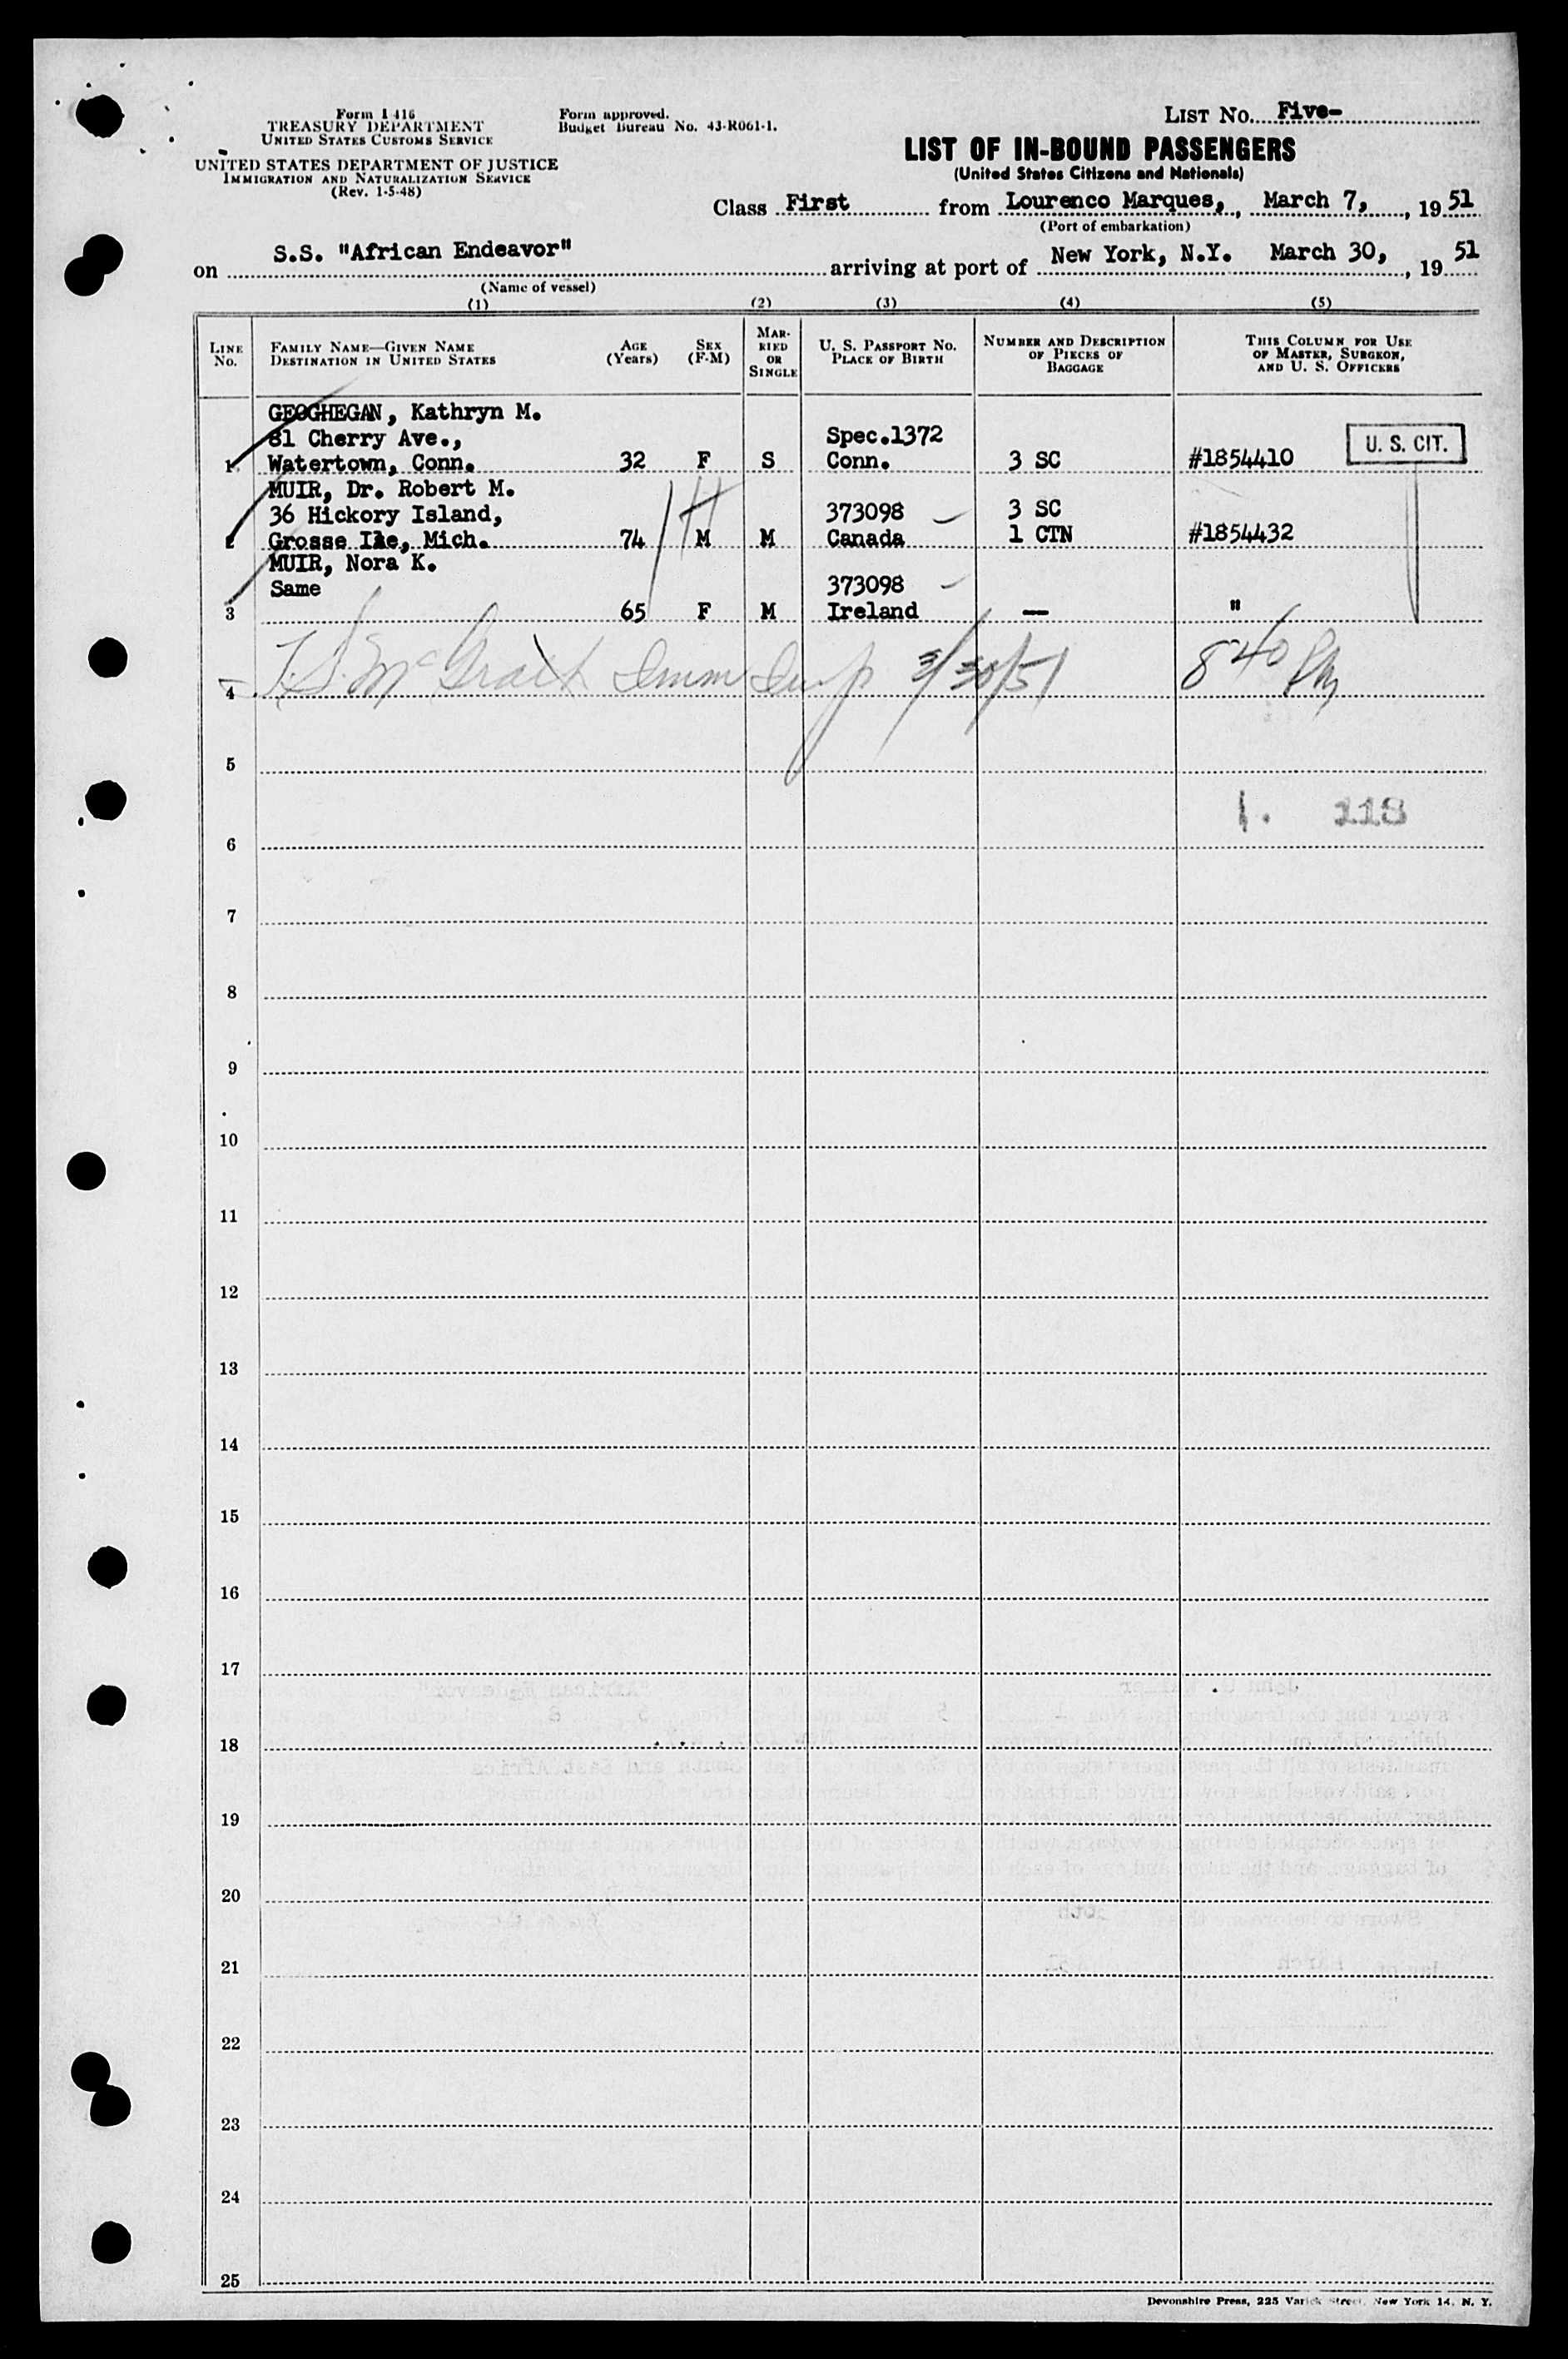 Form I 416
TREASURY DEPARTMENT
UNITED STATES CUSTOMS SERVICE
UNITED STATES DEPARTMENT OF JUSTICE
IMMIGRATION AND NATURALIZATION SERVICE
(Rev. 1-5-48)
Form approved.
Budget Bureau No. 43-R061-1.
LIST No. Five-
LIST OF IN-BOUND PASSENGERS
(United States Citizens and Nationals)
Class First from Lourenco Marques, March 7, 1951
(Port of embarkation)
on S.S. "African Endeavor" arriving at port of New York, N.Y. March 30, 1951
(Name of vessel)
(1) (2) (3) (4) (5)
LINE No.
FAMILY NAME—GIVEN NAME
DESTINATION IN UNITED STATES
AGE (Years)
SEX (F-M)
MARRIED OR SINGLE
U. S. PASSPORT No.
PLACE OF BIRTH
NUMBER AND DESCRIPTION OF PIECES OF BAGGAGE
THIS COLUMN FOR USE OF MASTER, SURGEON, AND U. S. OFFICERS
GEOGHEGAN, Kathryn M.
81 Cherry Ave., Spec.1372 U. S. CIT.
1 Watertown, Conn. 32 F S Conn. 3 SC #1854410
MUIR, Dr. Robert M.
36 Hickory Island, 373098 3 SC
2 Grosse Ile, Mich. 74 M M Canada 1 CTN #1854432
MUIR, Nora K.
Same 373098
3 65 F M Ireland — "
4 McGrath Imm Insp 3/30/51 8 40 PM
5
1. 118
6
7
8
9
10
11
12
13
14
15
16
17
18
19
20
21
22
23
24
25
Devonshire Press, 225 Varick Street, New York 14, N. Y.